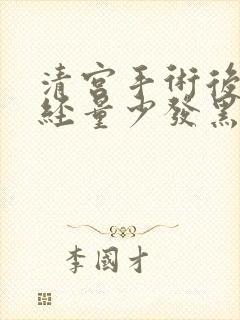 清宮手術後
經量少發黑
李國才